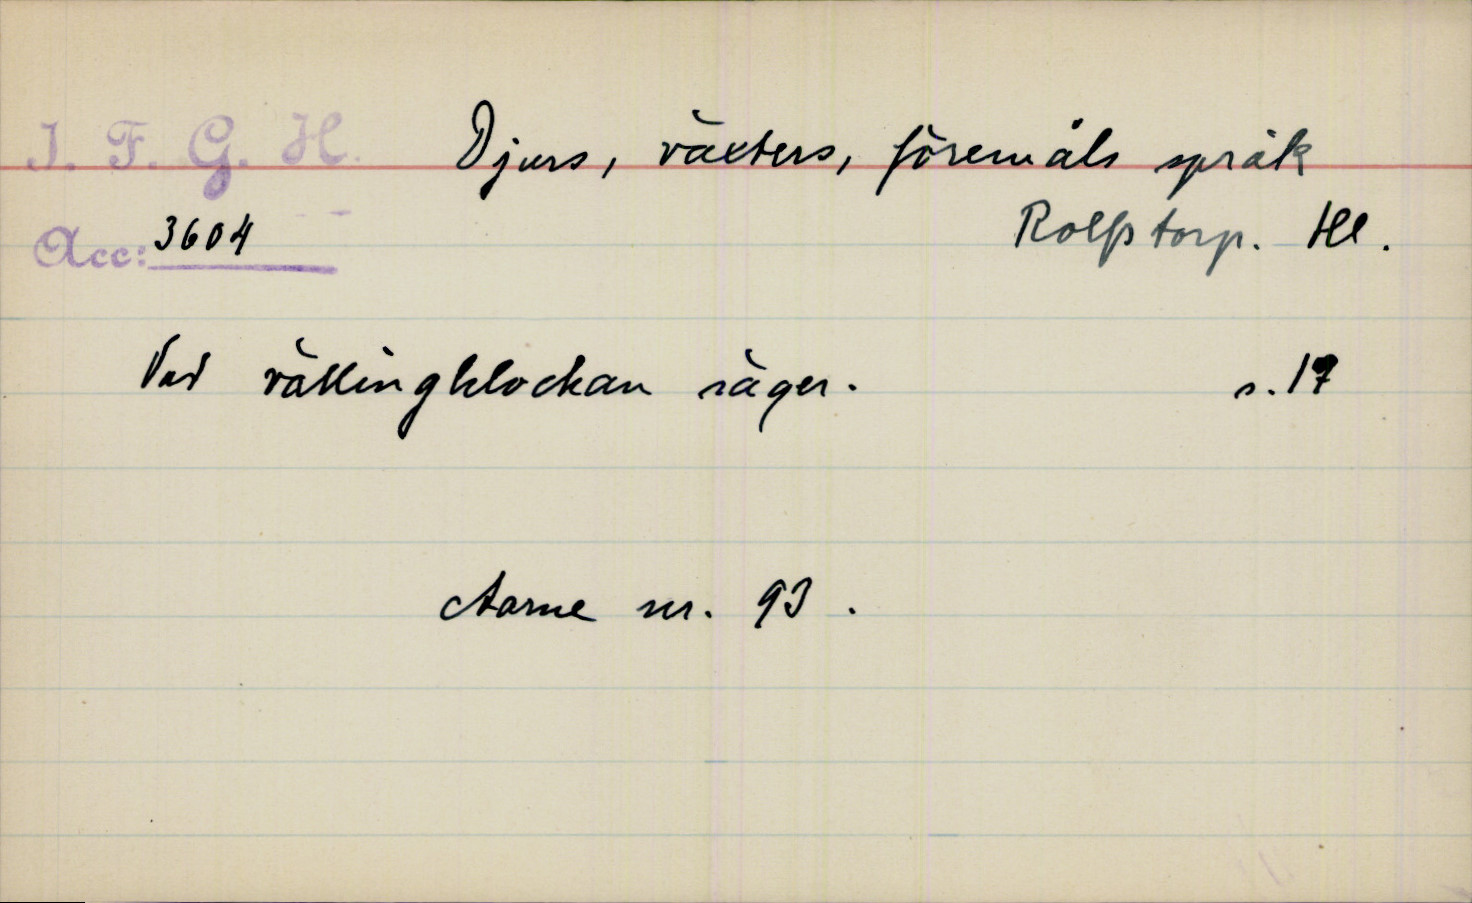 I. F. G. H. Djurs, växters, föremåls språk
Acc: 3604 Rolfstorp. Hl.
Vad vällingklockan säger. s. 17
Aarne nr. 93.